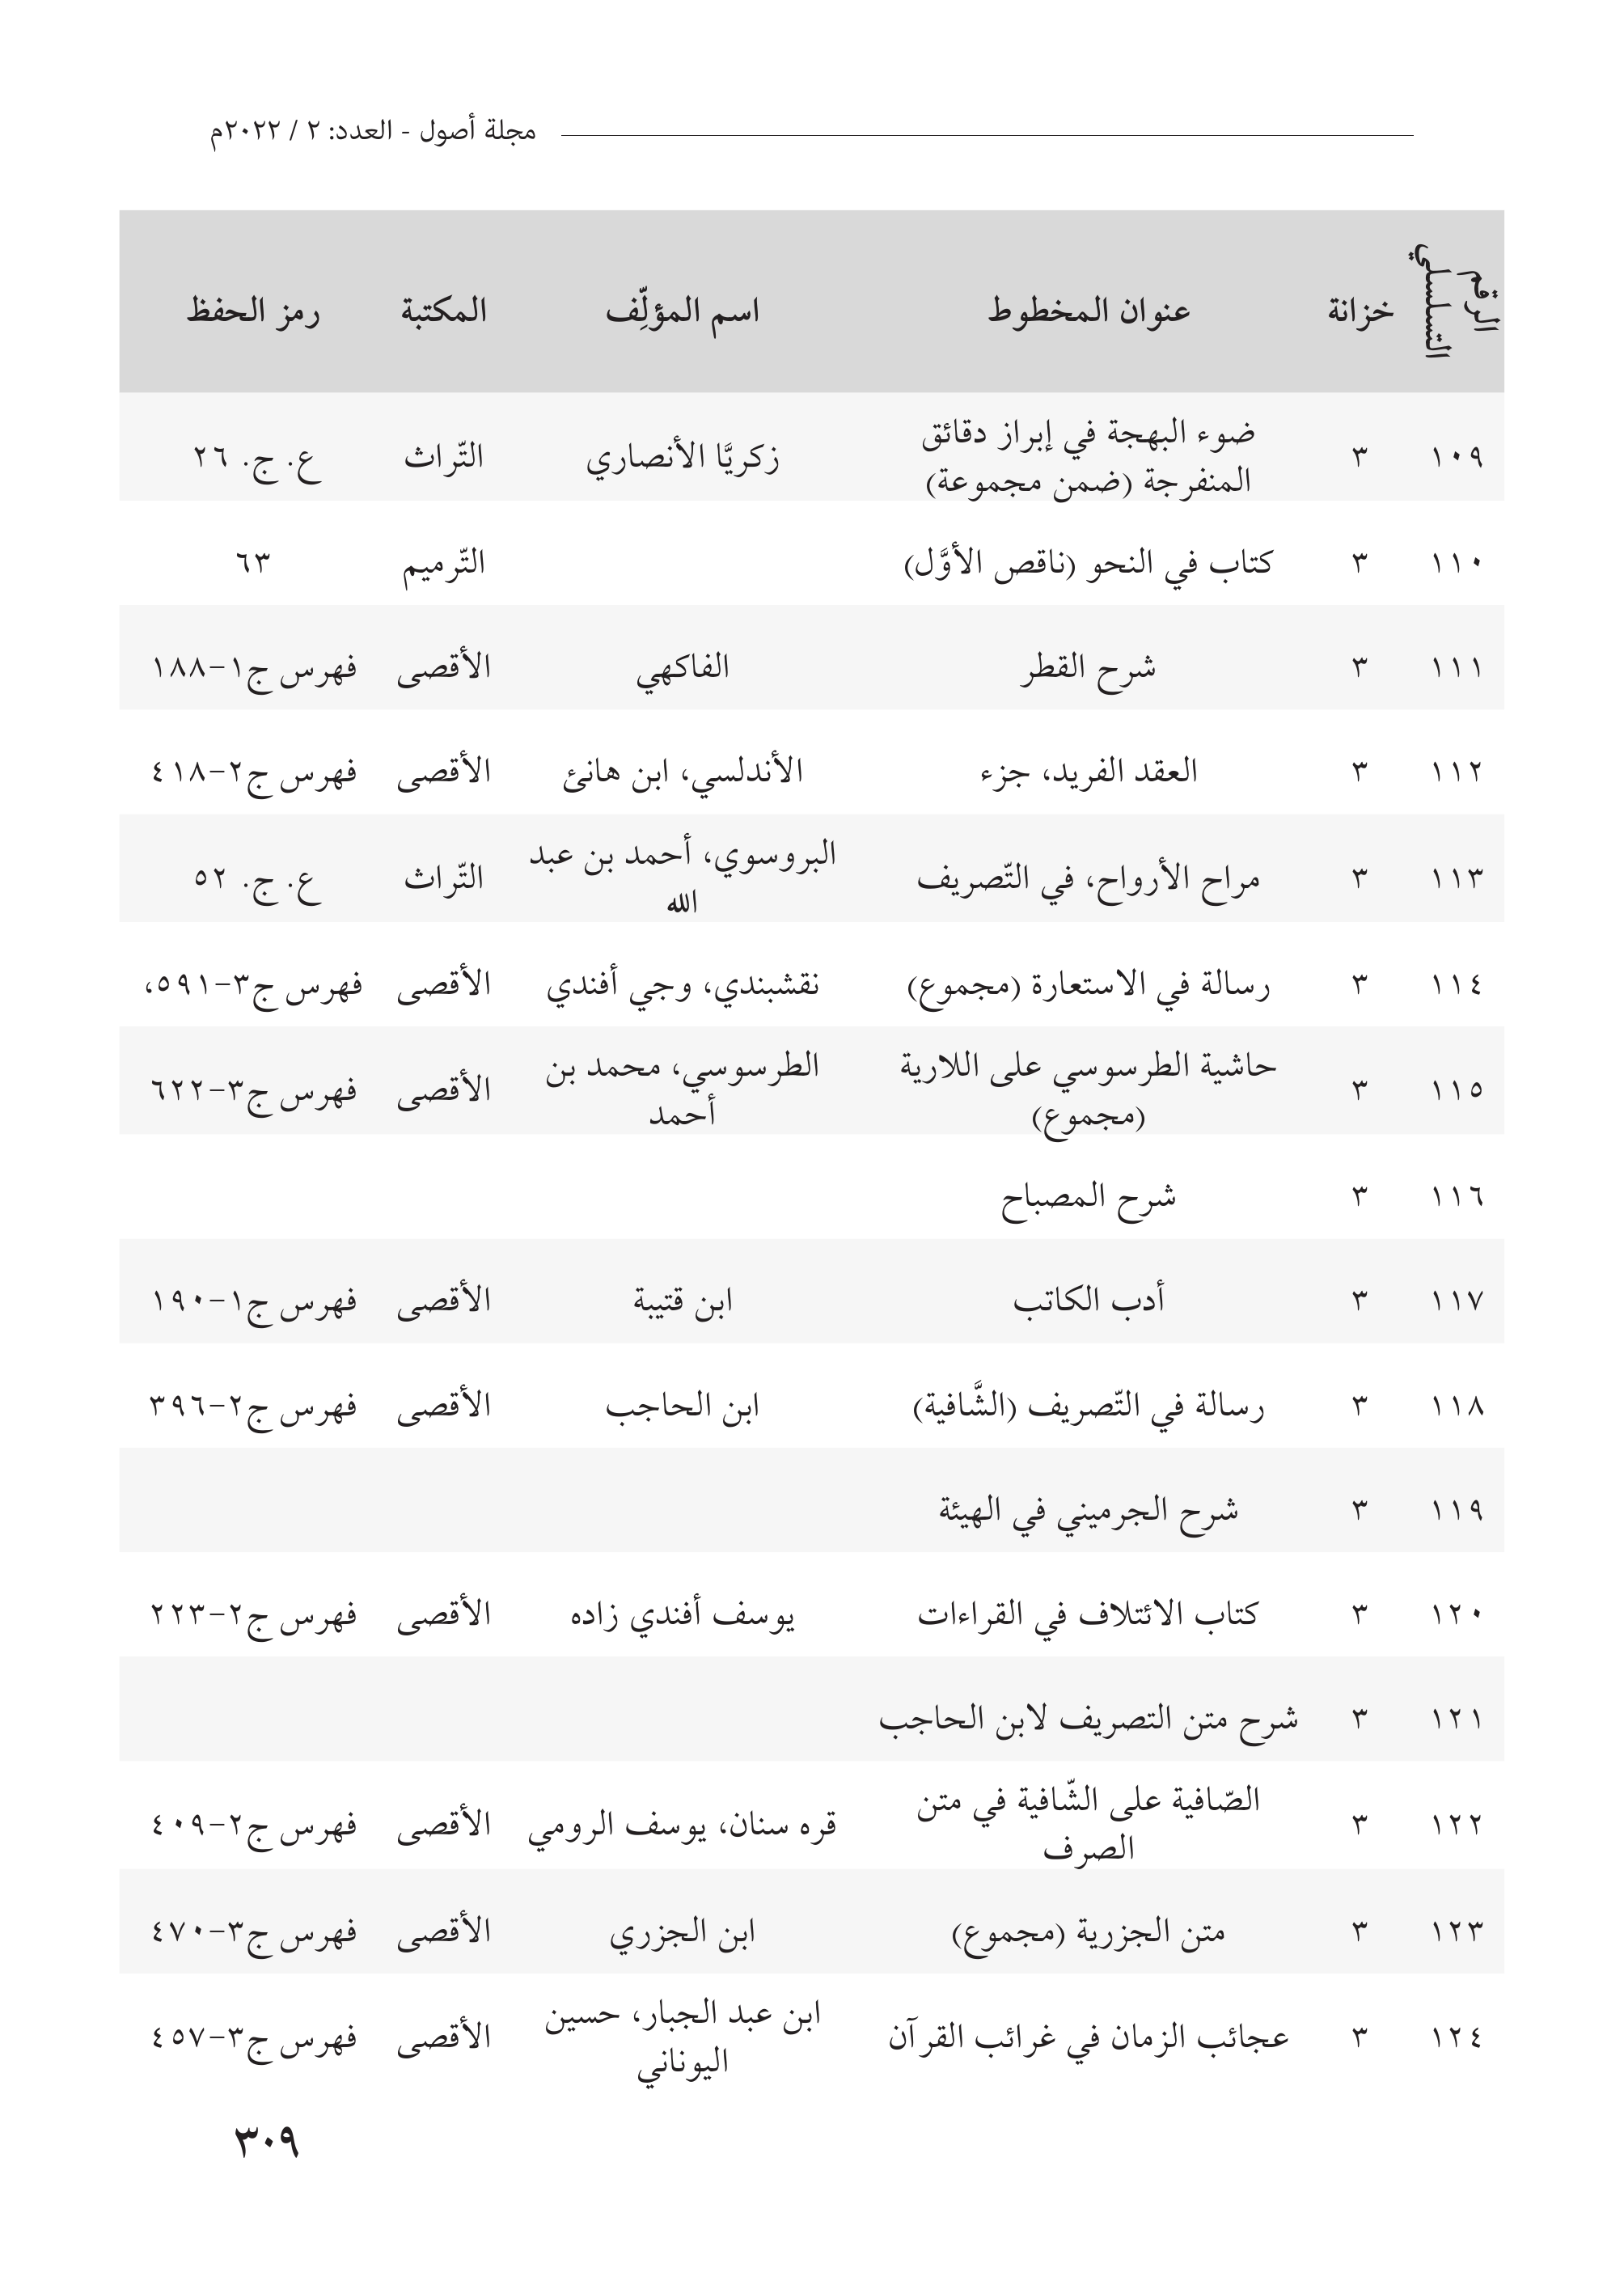 مجلة أصول - العدد: ٢ / ٢٠٢٢م
الرقم التسلسلي خزانة عنوان المخطوط اسم المؤلِّف المكتبة رمز الحفظ
١٠٩ ٣ ضوء البهجة في إبراز دقائق المنفرجة (ضمن مجموعة) زكريَّا الأنصاري التّراث ع. ج. ٢٦
١١٠ ٣ كتاب في النحو (ناقص الأوَّل) التّرميم ٦٣
١١١ ٣ شرح القطر الفاكهي الأقصى فهرس ج١-١٨٨
١١٢ ٣ العقد الفريد، جزء الأندلسي، ابن هانئ الأقصى فهرس ج٢-٤١٨
١١٣ ٣ مراح الأرواح، في التّصريف البروسوي، أحمد بن عبد الله التّراث ع. ج. ٥٢
١١٤ ٣ رسالة في الاستعارة (مجموع) نقشبندي، وجي أفندي الأقصى فهرس ج٣-٥٩١،
١١٥ ٣ حاشية الطرسوسي على اللارية (مجموع) الطرسوسي، محمد بن أحمد الأقصى فهرس ج٣-٦٢٢
١١٦ ٣ شرح المصباح
١١٧ ٣ أدب الكاتب ابن قتيبة الأقصى فهرس ج١-١٩٠
١١٨ ٣ رسالة في التّصريف (الشَّافية) ابن الحاجب الأقصى فهرس ج٢-٣٩٦
١١٩ ٣ شرح الجرميني في الهيئة
١٢٠ ٣ كتاب الائتلاف في القراءات يوسف أفندي زاده الأقصى فهرس ج٢-٢٢٣
١٢١ ٣ شرح متن التصريف لابن الحاجب
١٢٢ ٣ الصّافية على الشّافية في متن الصرف قره سنان، يوسف الرومي الأقصى فهرس ج٢-٤٠٩
١٢٣ ٣ متن الجزرية (مجموع) ابن الجزري الأقصى فهرس ج٣-٤٧٠
١٢٤ ٣ عجائب الزمان في غرائب القرآن ابن عبد الجبار، حسين اليوناني الأقصى فهرس ج٣-٤٥٧
٣٠٩